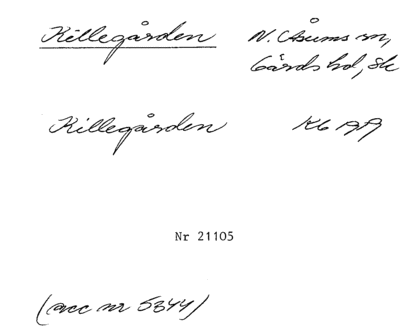 Killegården N. Åsums sn,
Gärds hd, Sk
Killegården Kb 1919
Nr 21105
(acc nr 5344)